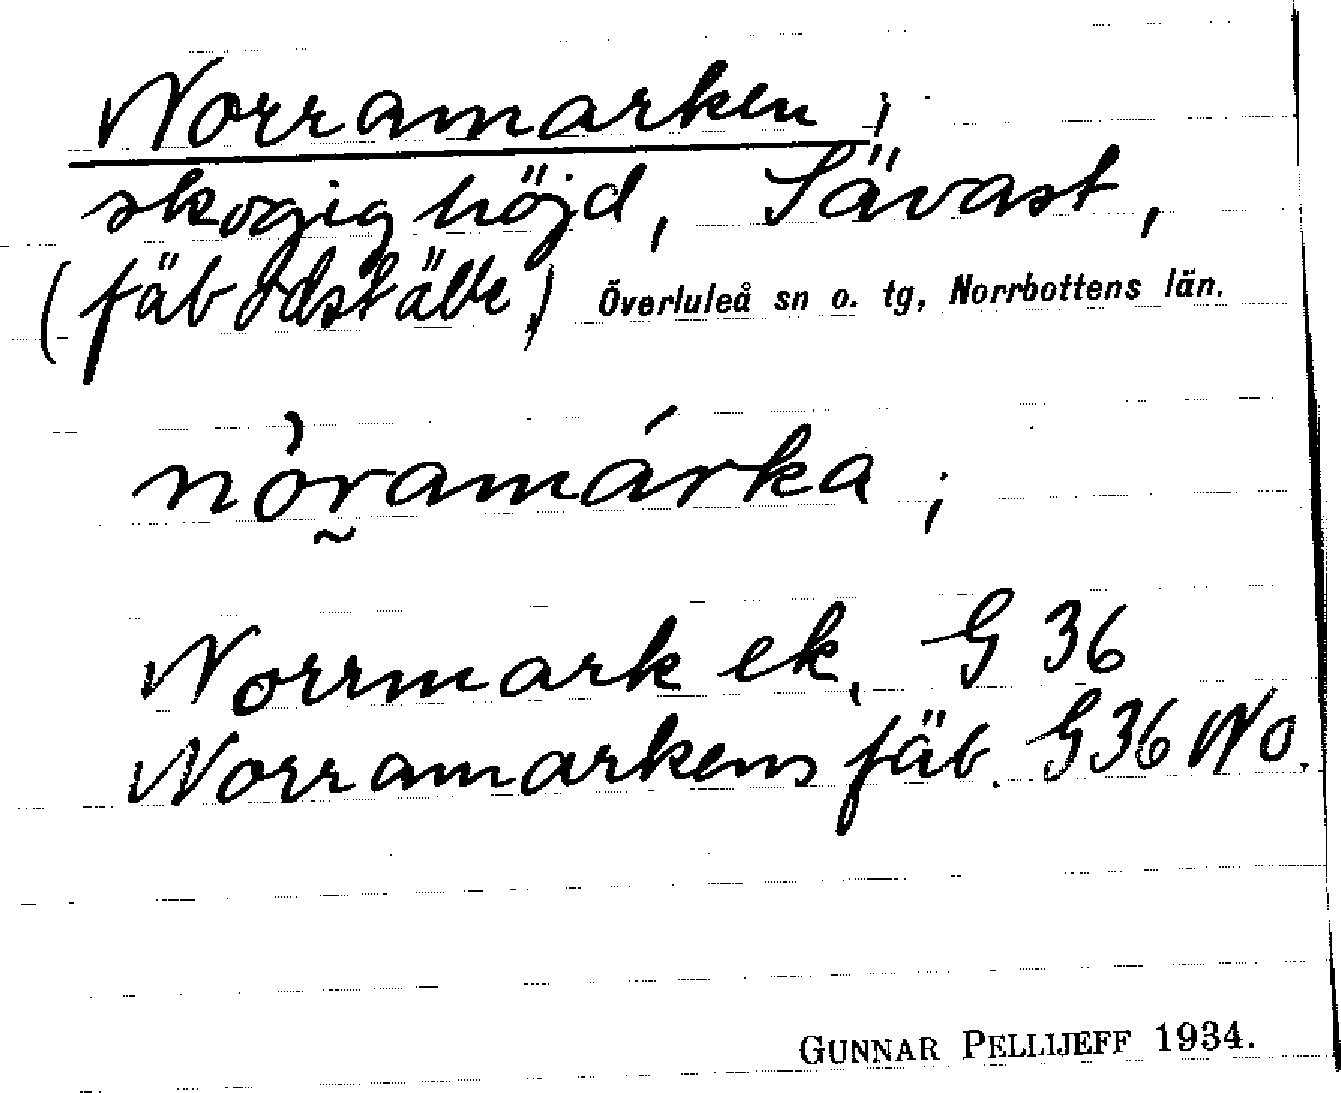 Norramarken;
skogig höjd, Sävast,
(fäbodställe) Överluleå sn o. tg, Norrbottens län.
nòr̰amárka;
Norrmark ek. G 36
Norramarkens fäb. G36 No.
GUNNAR PELLIJEFF 1934.